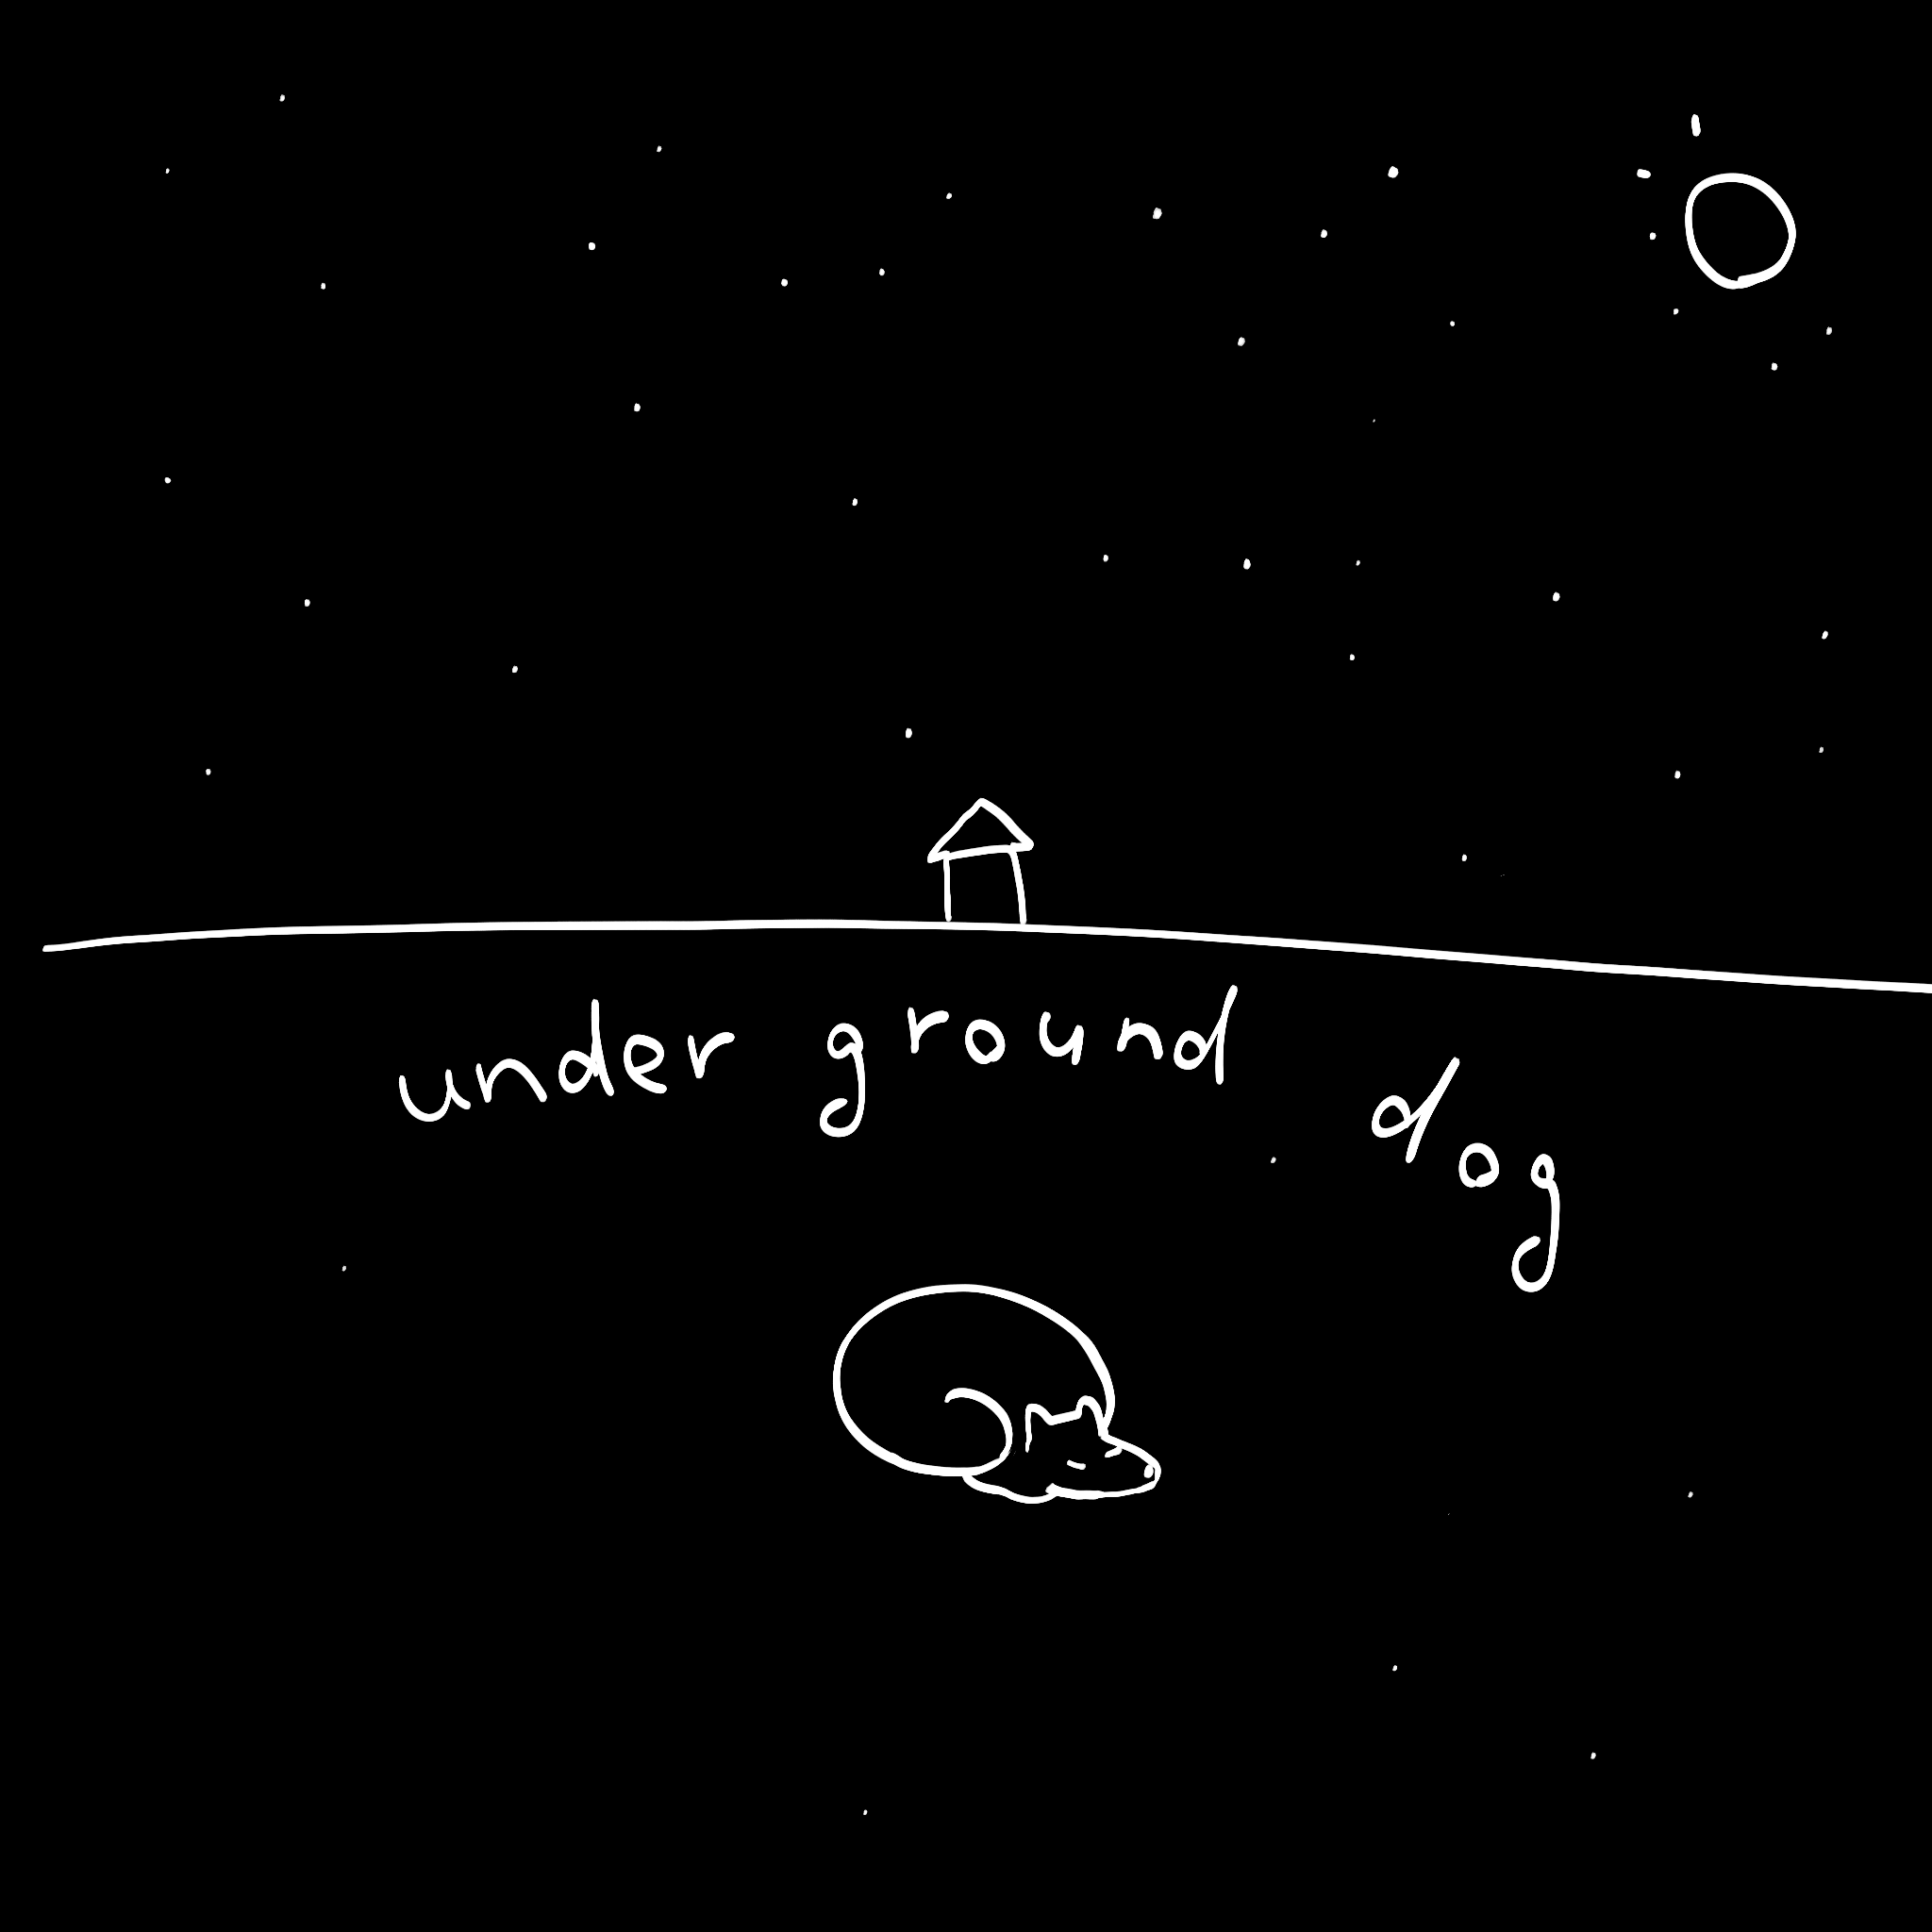 under ground dog